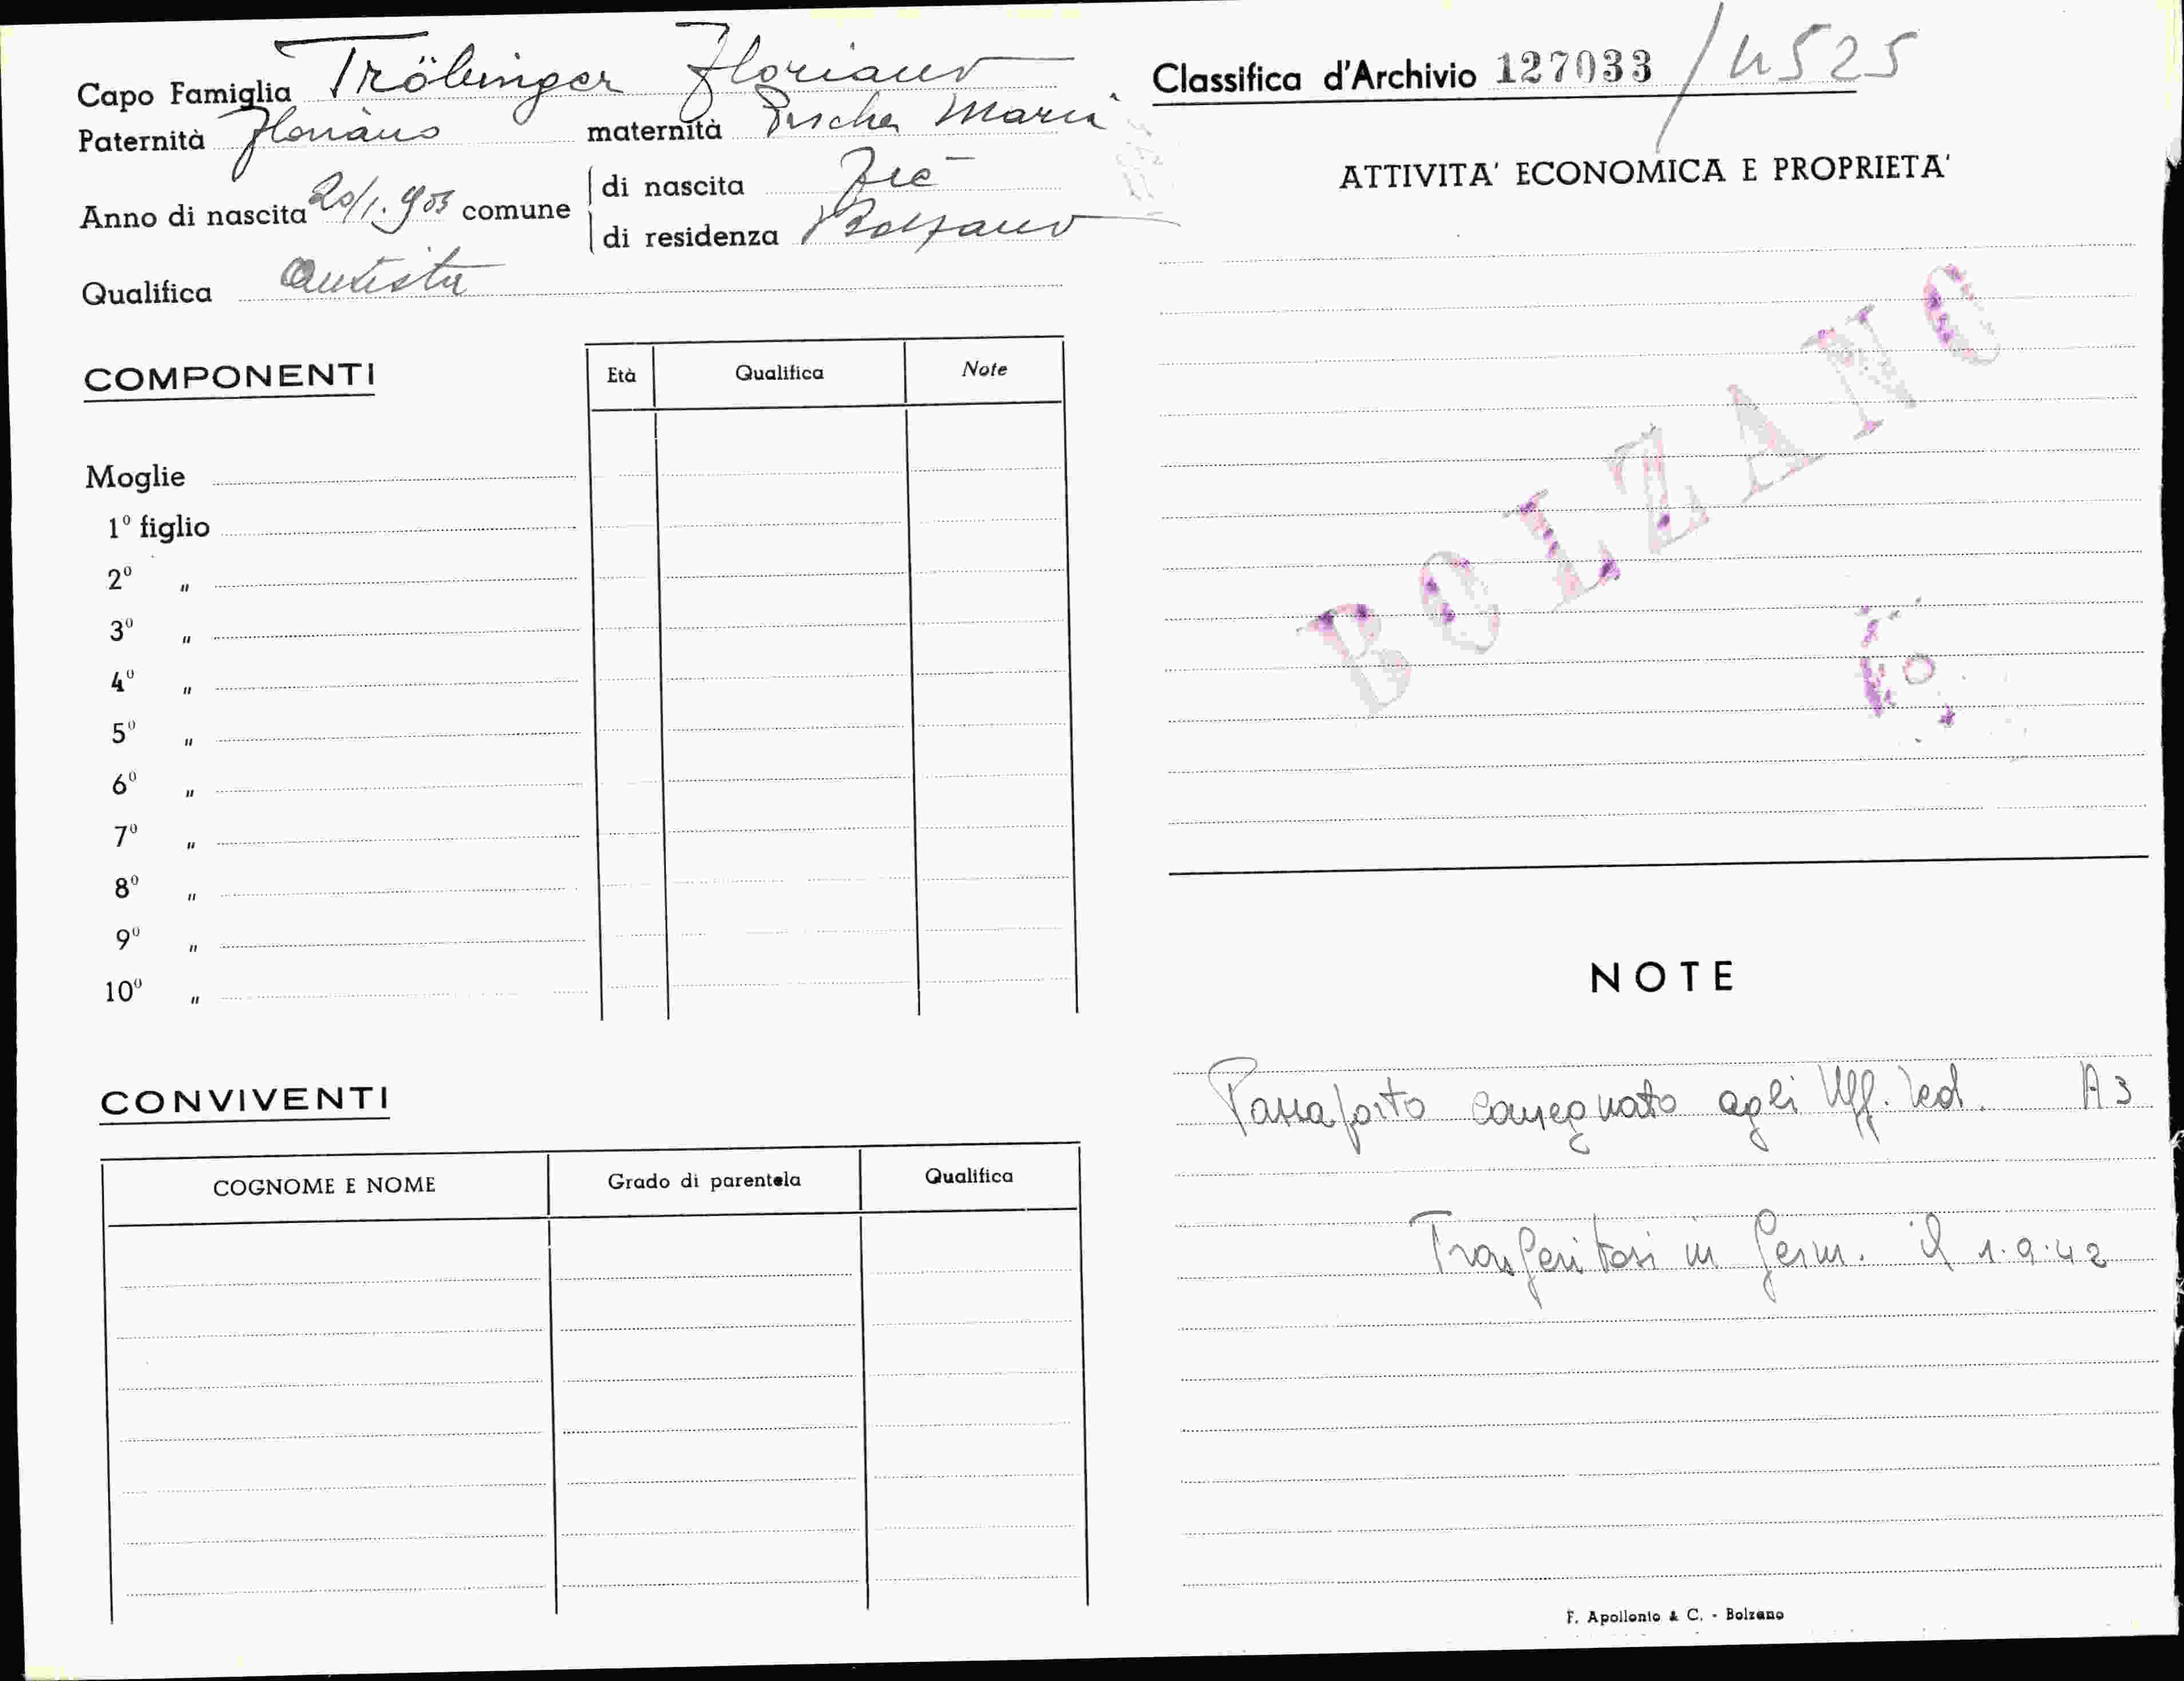 Capo Famiglia Tröbinger Floriano
Paternità Floriano maternità Maria
Anno di nascita 20/1.903 comune di nascita
di residenza Bolzano
Qualifica Autista
COMPONENTI
Età Qualifica Note
Moglie
1º figlio
2º "
3º "
4º "
5º "
6º "
7º "
8º "
9º "
10º "
CONVIVENTI
COGNOME E NOME Grado di parentela Qualifica
Classifica d'Archivio 127033 / 4525
ATTIVITA' ECONOMICA E PROPRIETA'
BOLZANO
NOTE
Passaporto consegnato agli Uff. Ted. A3
Trasferitosi in Germ. il 1.9.42
F. Apollonio & C. - Bolzano